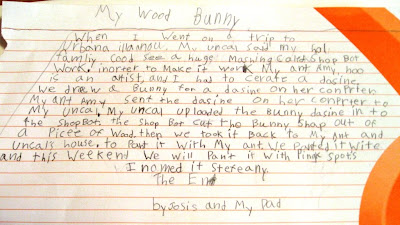 My Wood Bunny
When I went on a trip to
Urbana illannou, My uncal said my hol
family cood see a huge Mashing Caled Shop Bot
Work. in orrer to Make it work My ant Amy, hoo
is an artist, and I had to cerate a dasine.
We drew a Bunny for a dasine on her conpter
My ant Amy sent the dasine on her conpter to
My uncal. My uncal uploaded the Bunny dasine in to
the Shop Bot. the Shop Bot cut the Bunny Shap out of
a Picee of Wood. then we took it Back to My ant and
uncal's house. to Pant it With My ant. We Panted it wite
and this Weekend We Will Pan't it With Pinge Spots
I nomed it Stefeany.
The End
by Josis and My Dad